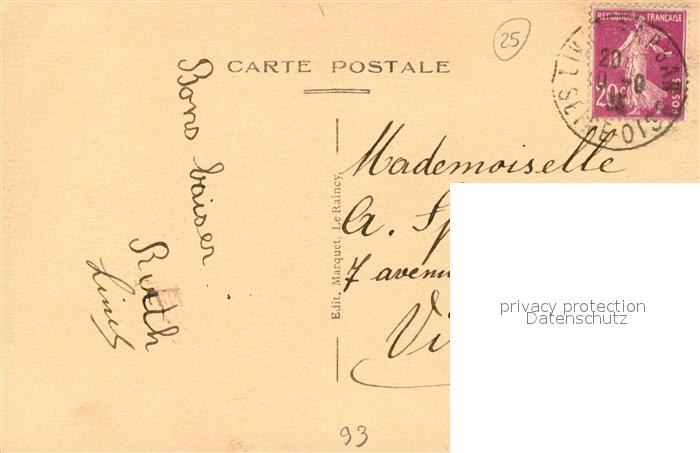 25
CARTE POSTALE
REPUBLIQUE FRANÇAISE
20c
POSTES
Bons baiser
Ruth
Edit. Marquet, Le Raincy
Mademoiselle
A. Sp
7 avenu
Vi
93
privacy protection
Datenschutz